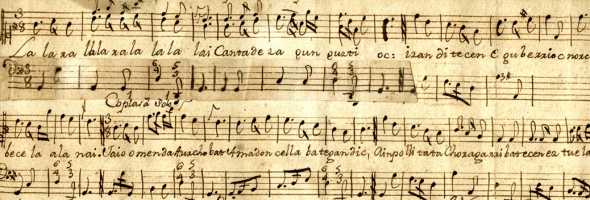 La la ra lala ra la la la lai Canta de za gun guzti oc: izan ditecen Eguberrioc nore
Coplas a solo
bece la ala nai. Jaio omenda Muchobat Ama doncella bategandic, Ain polli ta ta Choragarri batecenez tue la